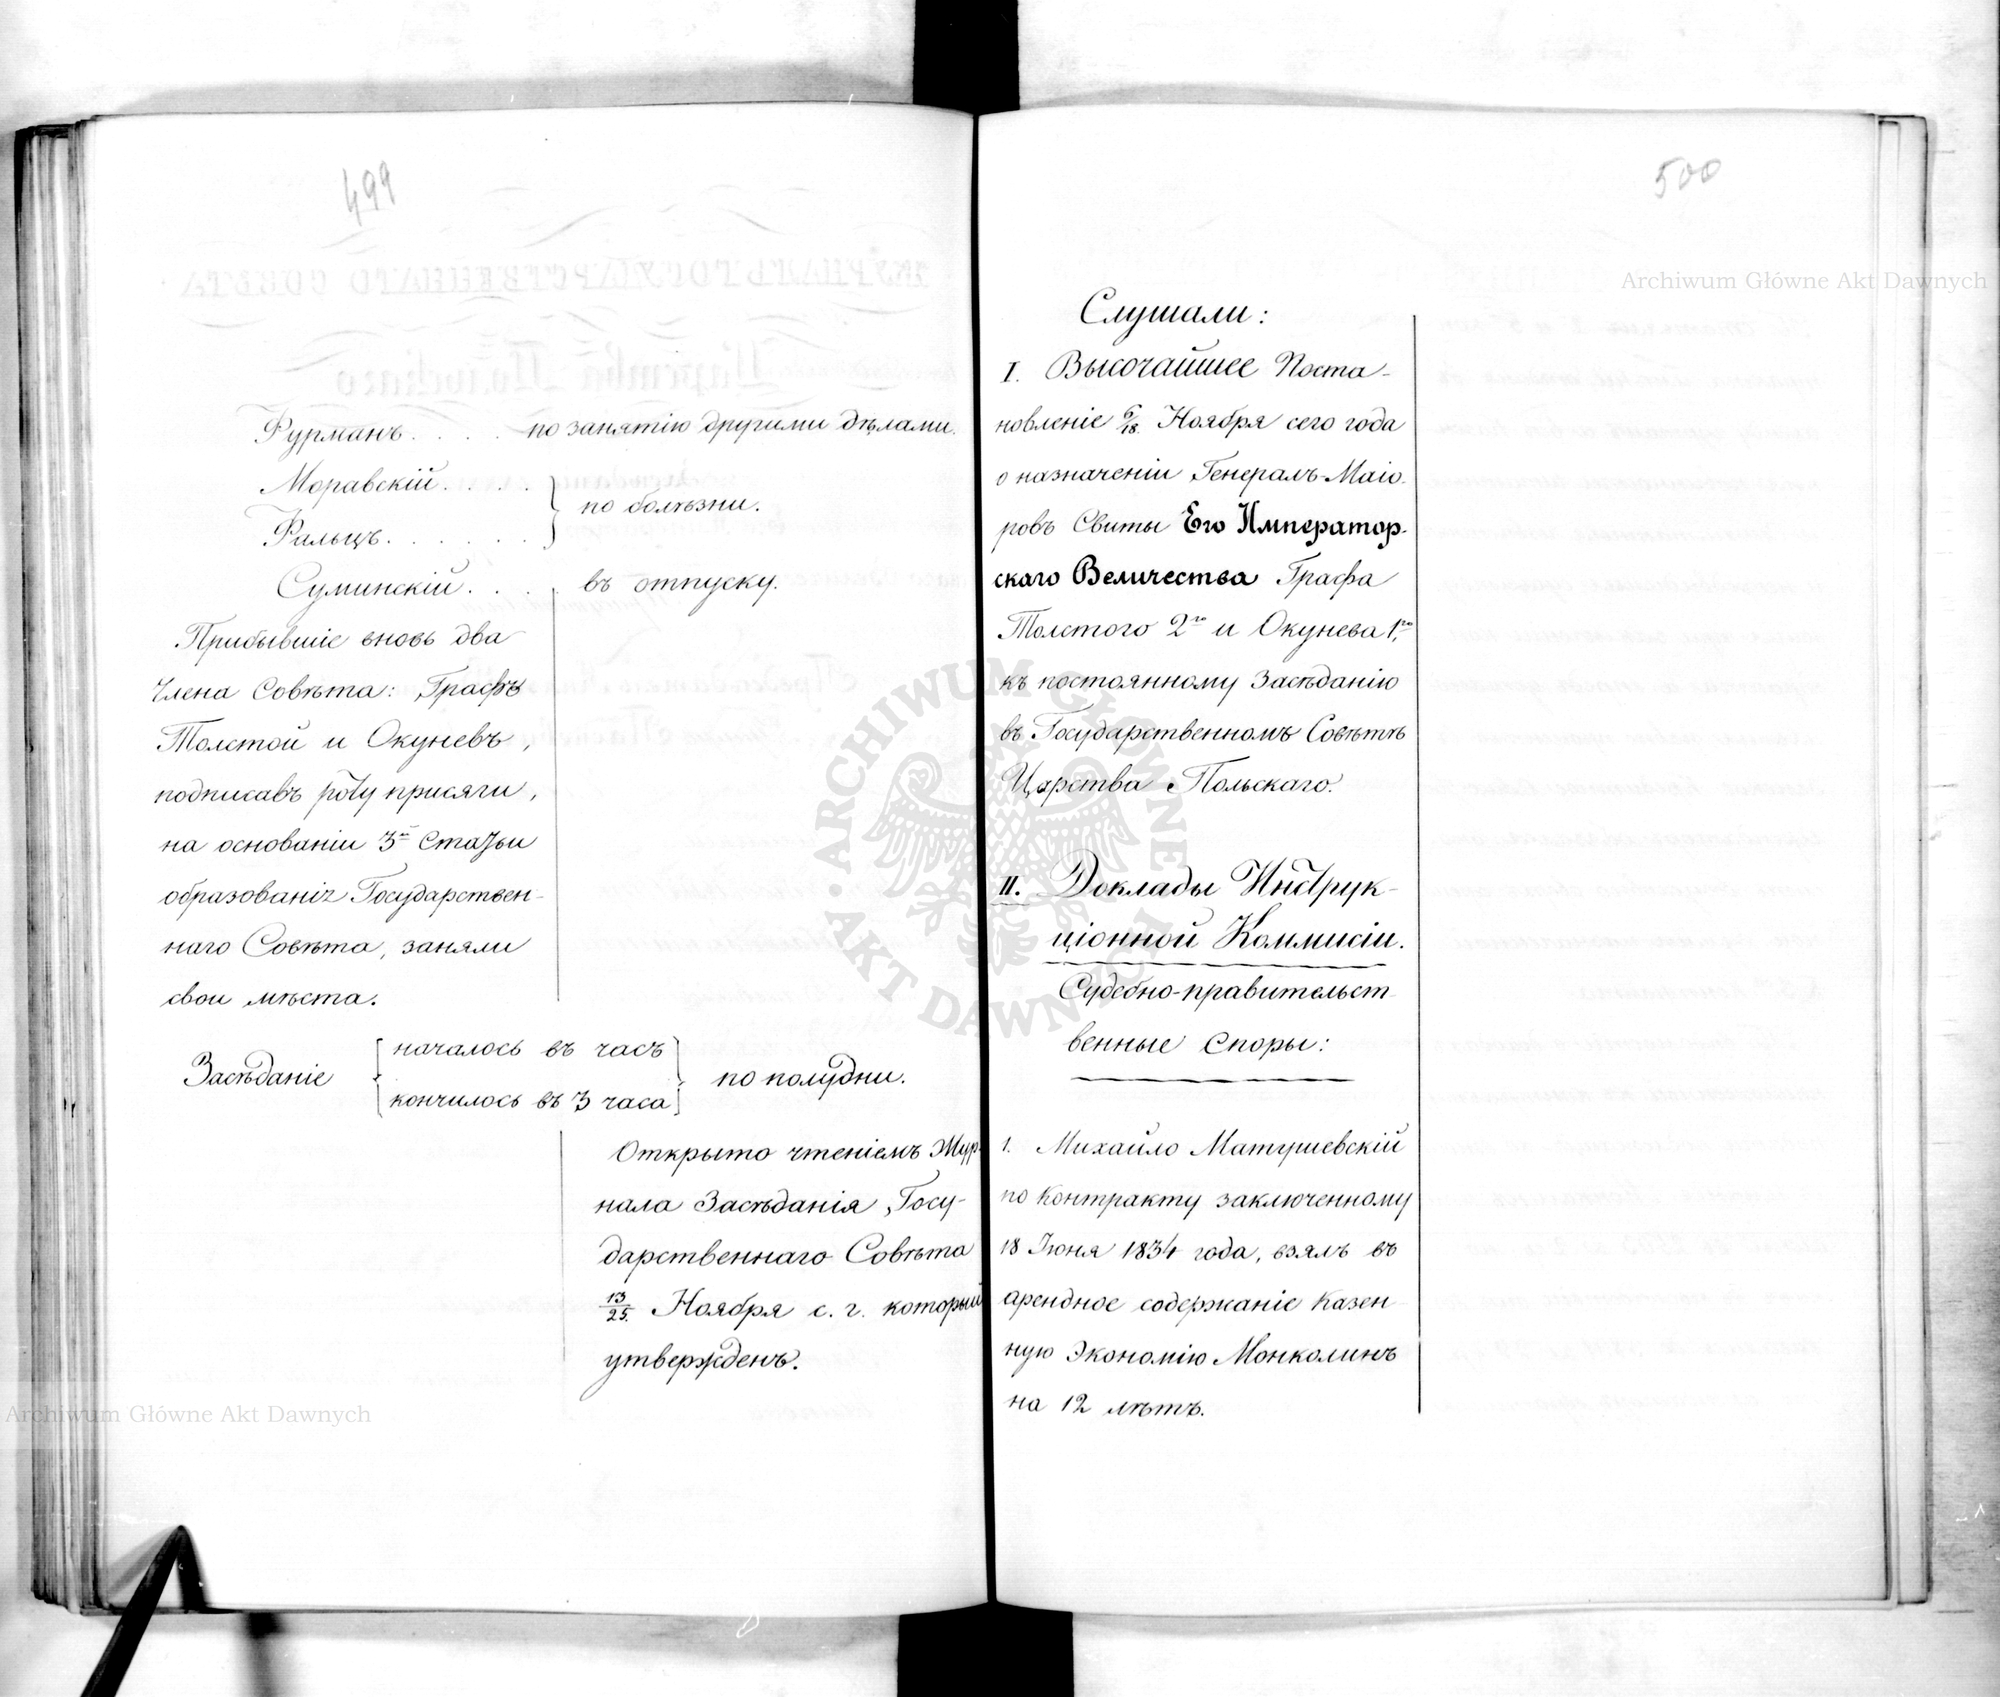 499
Фурманъ . . . . по занятію другими дѣлами.
Моравскій . . . .
Фальцъ . . . . . .
по болѣзни.
Суминскій . . . въ отпуску.
Прибывшіе вновь два
Члена Совѣта: Графъ
Толстой и Окуневъ,
подписавъ роту присяги,
на основаніи 3й Статьи
образованія Государствен-
наго Совѣта, заняли
свои мѣста.
Засѣданіе
началось въ часъ
кончилось въ 3 часа
по полудни.
Открыто чтеніемъ Жур-
нала Засѣданія Госу-
дарственнаго Совѣта
13/25. Ноября с. г. который
утвержденъ.
500
Слушали:
I. Высочайшее Поста-
новленіе 6/18. Ноября сего года
о назначеніи Генералъ-Маіо-
ровъ Свиты Его Император-
скаго Величества Графа
Толстого 2го и Окунева 1го,
къ постоянному Засѣданію
въ Государственномъ Совѣтѣ
Царства Польскаго.
II. Доклады Инструк-
ціонной Коммисіи.
Судебно-правительст-
венные Споры:
1. Михайло Матушевскій
по Контракту заключенному
18 Іюня 1834 года, взялъ въ
арендное содержаніе Казен-
ную Экономію Монколинъ
на 12 лѣтъ.
Archiwum Główne Akt Dawnych
ARCHIWUM GŁÓWNE AKT DAWNYCH
Archiwum Główne Akt Dawnych